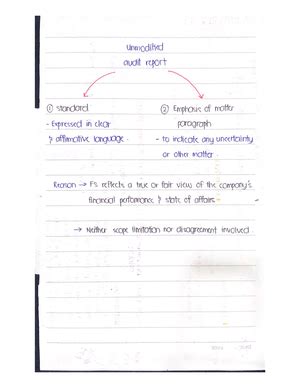 Unmodified
audit report
① standard
- Expressed in clear
& affirmative language.
② Emphasis of matter
paragraph
- to indicate any uncertainty
or other matter
Reason → FS reflects a true or fair view of the company's
financial performance & state of affairs
→ Neither scope limitation nor disagreement involved